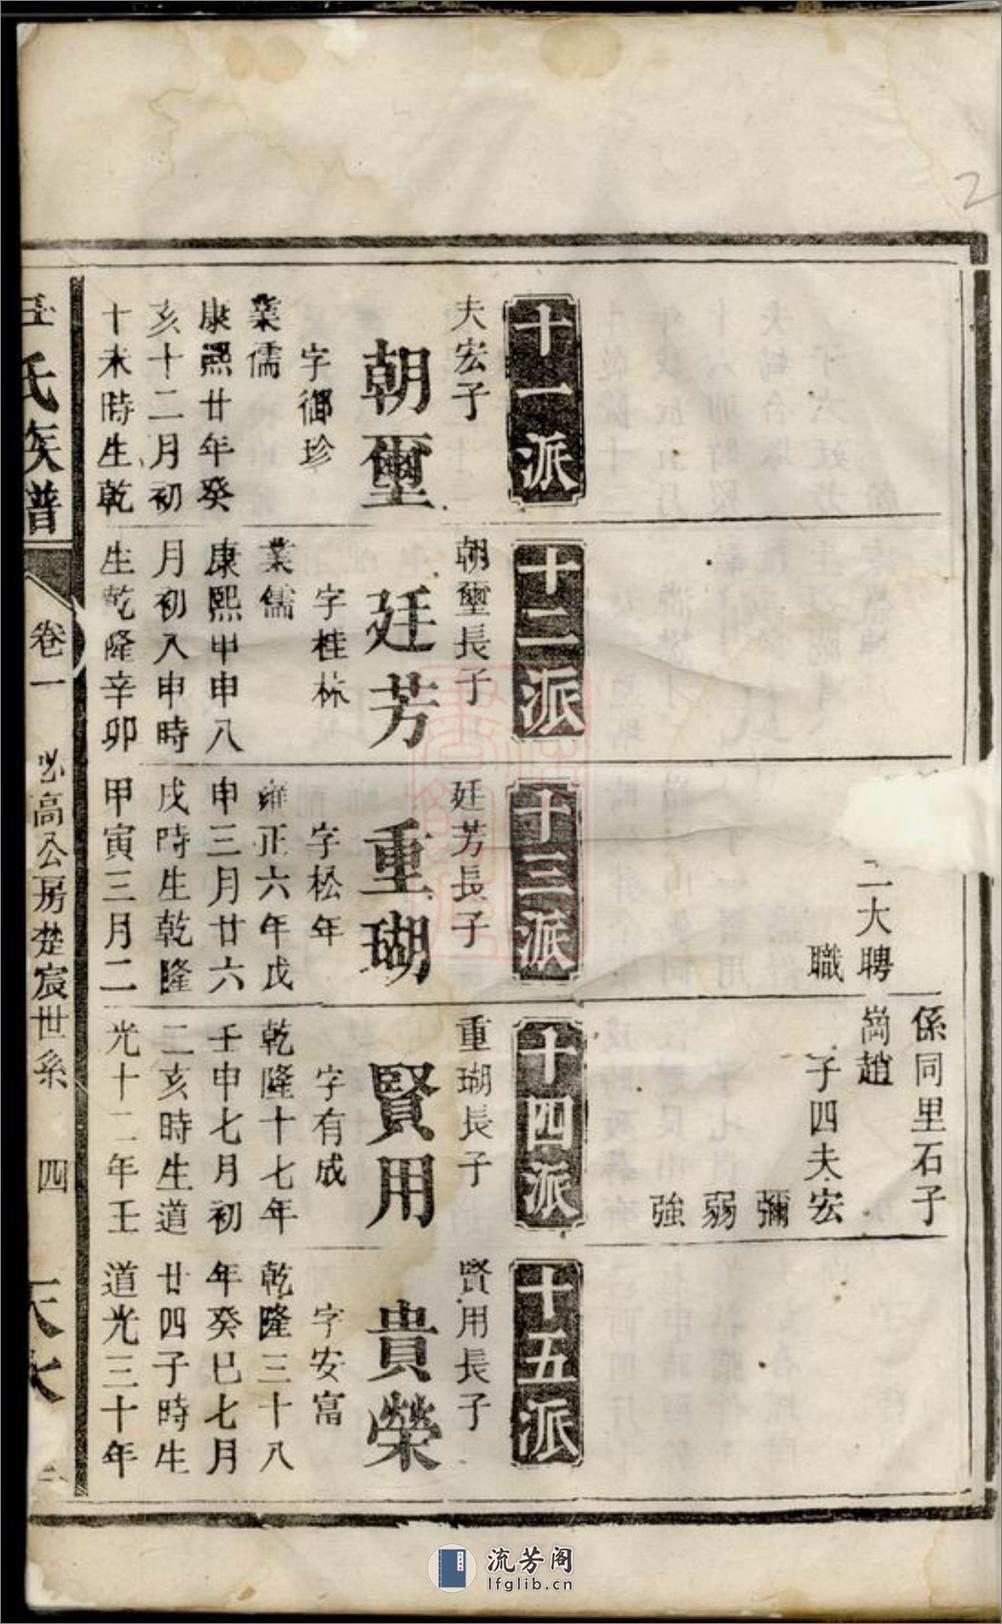 係同里石子
二大聘
崗趙
職
子四夫宏
彌
弱
強
十一派
夫宏子
朝璽
字御珍
業儒
康熙廿年癸
亥十二月初
十未時生乾
十二派
朝璽長子
廷芳
字桂林
業儒
康熙甲申八
月初八申時
生乾隆辛卯
十三派
廷芳長子
重瑚
字松年
雍正六年戊
申三月廿六
戌時生乾隆
甲寅三月二
十四派
重瑚長子
賢用
字有成
乾隆十七年
壬申七月初
二亥時生道
光十二年壬
十五派
賢用長子
貴榮
字安富
乾隆三十八
年癸巳七月
廿四子時生
道光三十年
氏族譜
卷一
必高公房楚宸世系
四
天水
2
流芳阁
lfglib.cn